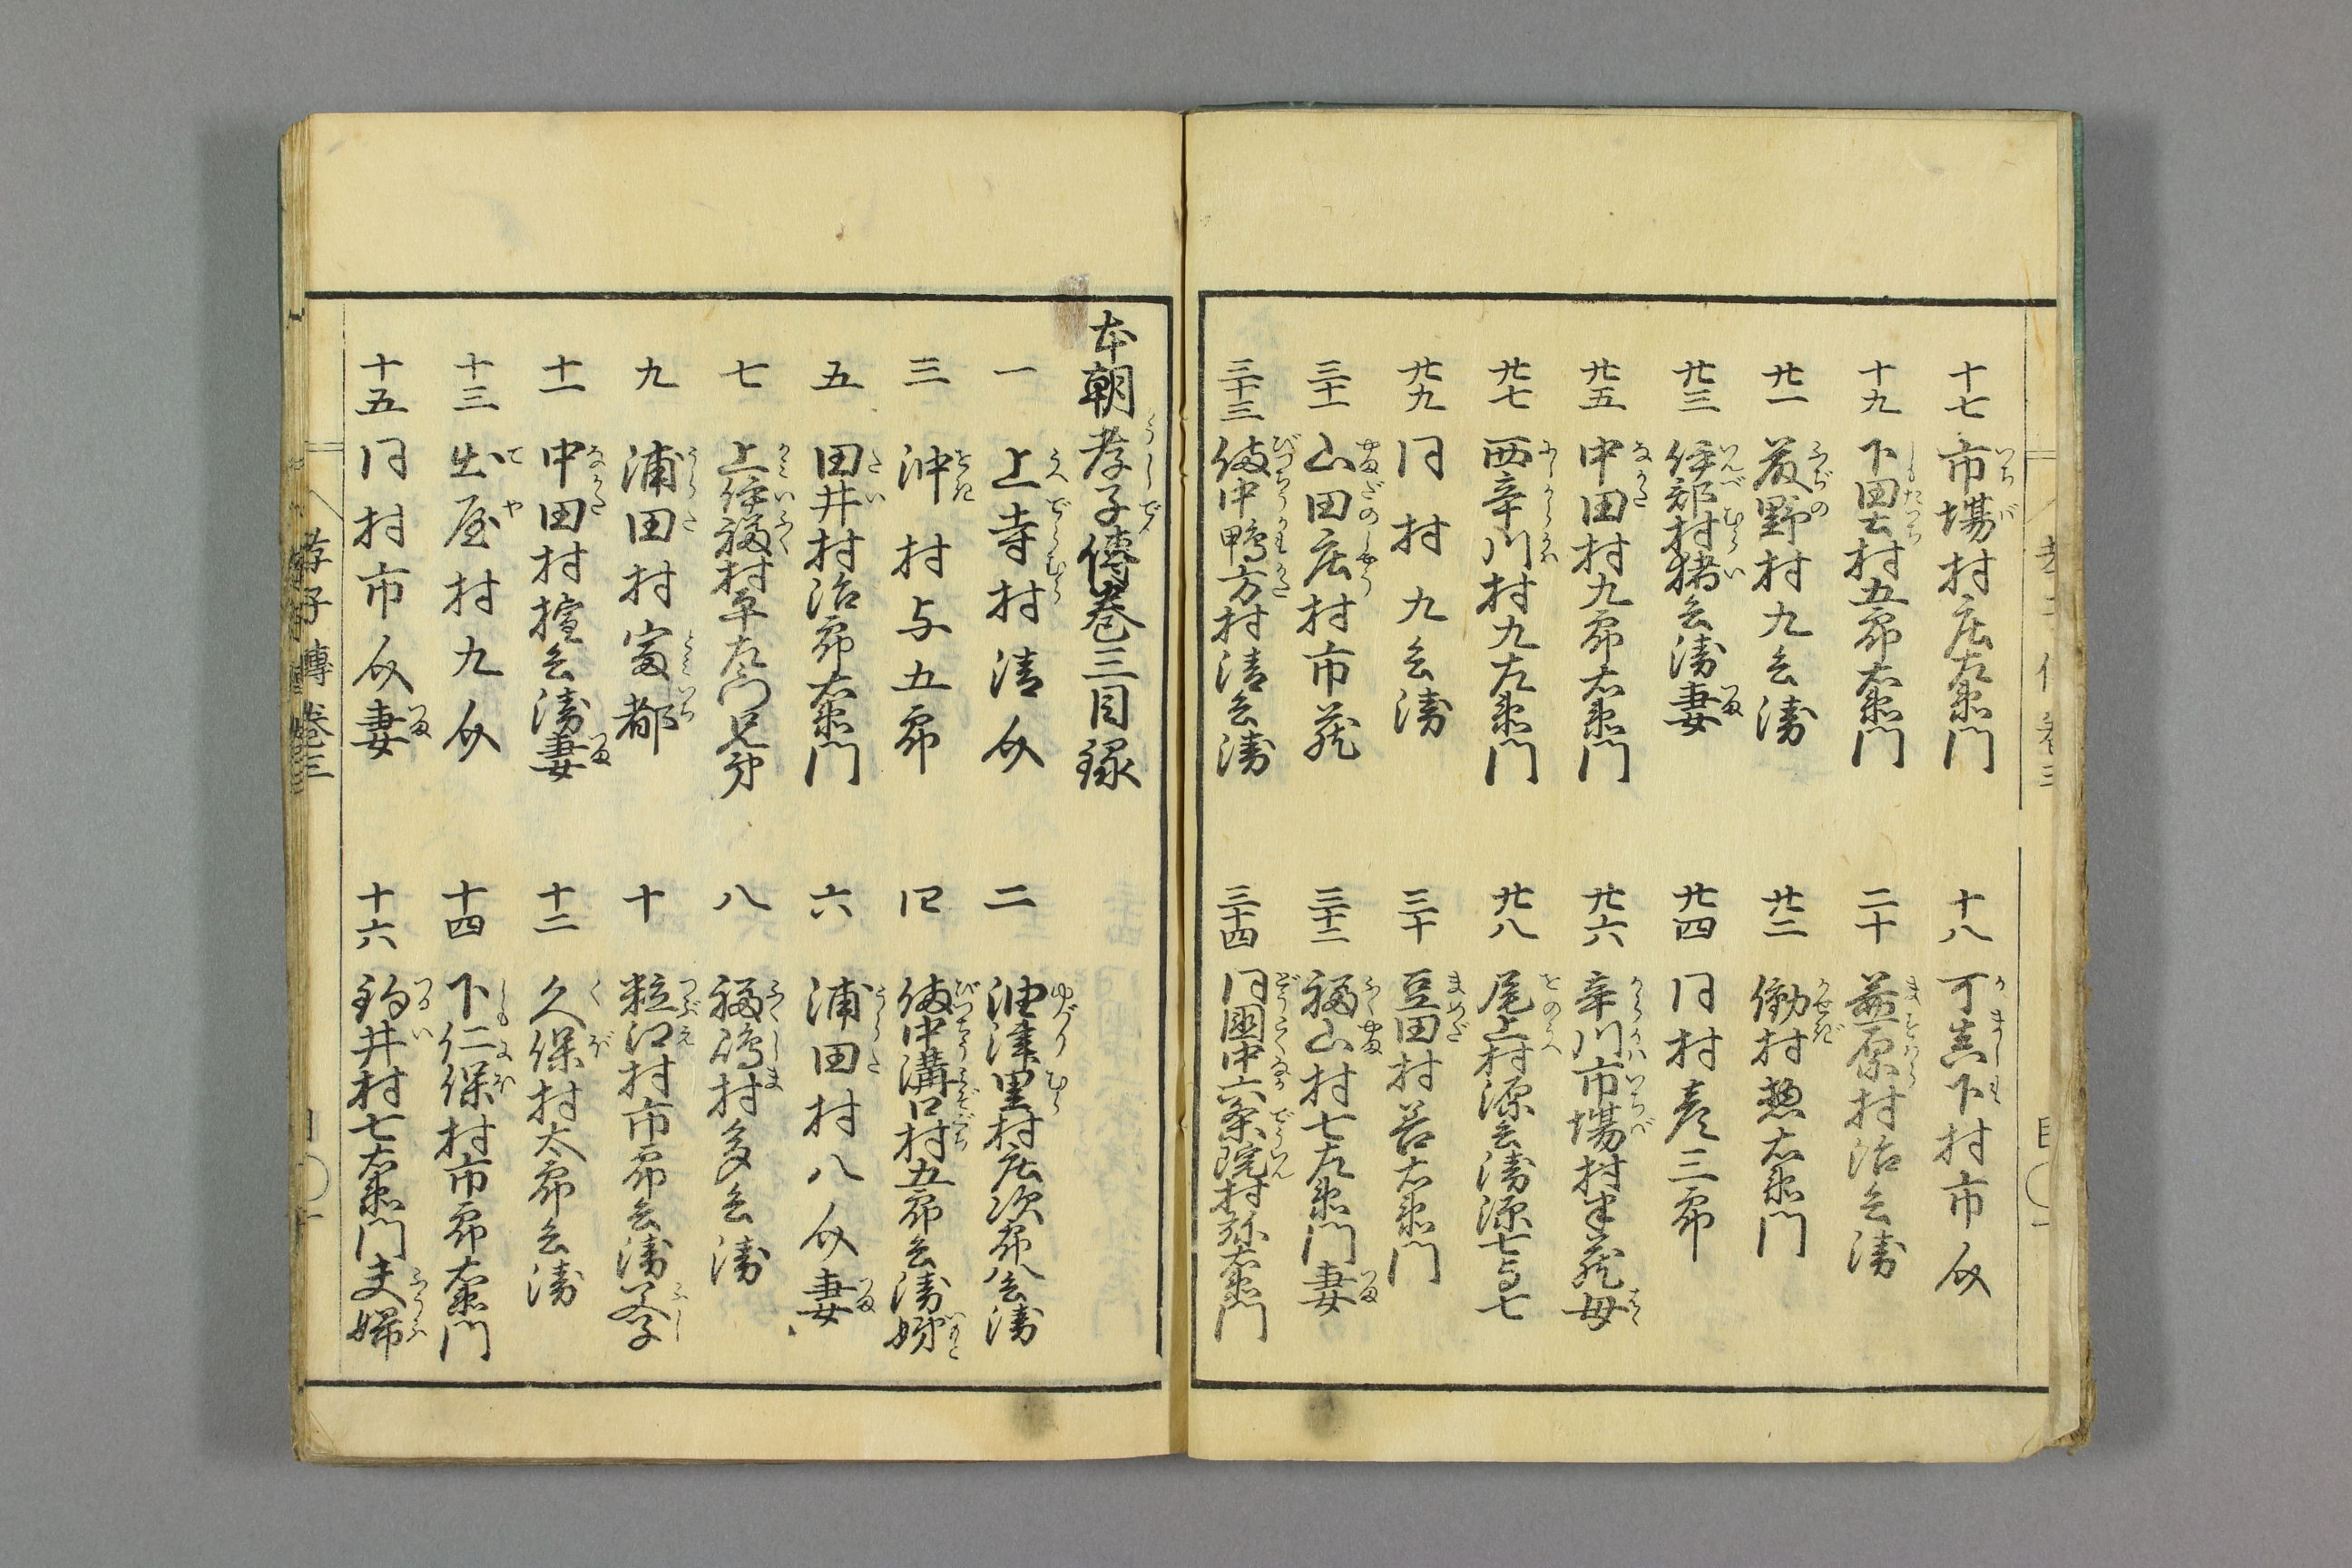 十七 市場村庄左衛門 十八 可真下村市介
十九 下田土村五郎右衛門 二十 益原村治兵衛
廿一 藤野村九兵衛 廿二 働村惣右衛門
廿三 伊部村猪兵衛妻 廿四 同村彦三郎
廿五 中田村九郎右衛門 廿六 辛川市場村半蔵母
廿七 西辛川村九左衛門 廿八 尾上村源兵衛源七与七
廿九 同村九兵衛 三十 豆田村善右衛門
三十一 山田庄村市蔵 三十二 福山村七左衛門妻
三十三 備中鴨方村清兵衛 三十四 同國中六条院村弥右衛門
本朝孝子傳巻三目録
一 上寺村清介 二 油津里村庄次郎兵衛
三 沖村与五郎 四 備中溝口村五郎兵衛妹
五 田井村治郎右衛門 六 浦田村八介妻
七 上伊福村平左衛門兄弟 八 福嶋村多兵衛
九 浦田村富都 十 粒江村市郎兵衛父子
十一 中田村權兵衛妻 十二 久保村太郎兵衛
十三 出屋村九介 十四 下仁保村市郎右衛門
十五 同村市介妻 十六 釣井村七右衛門夫婦
孝子傳巻三